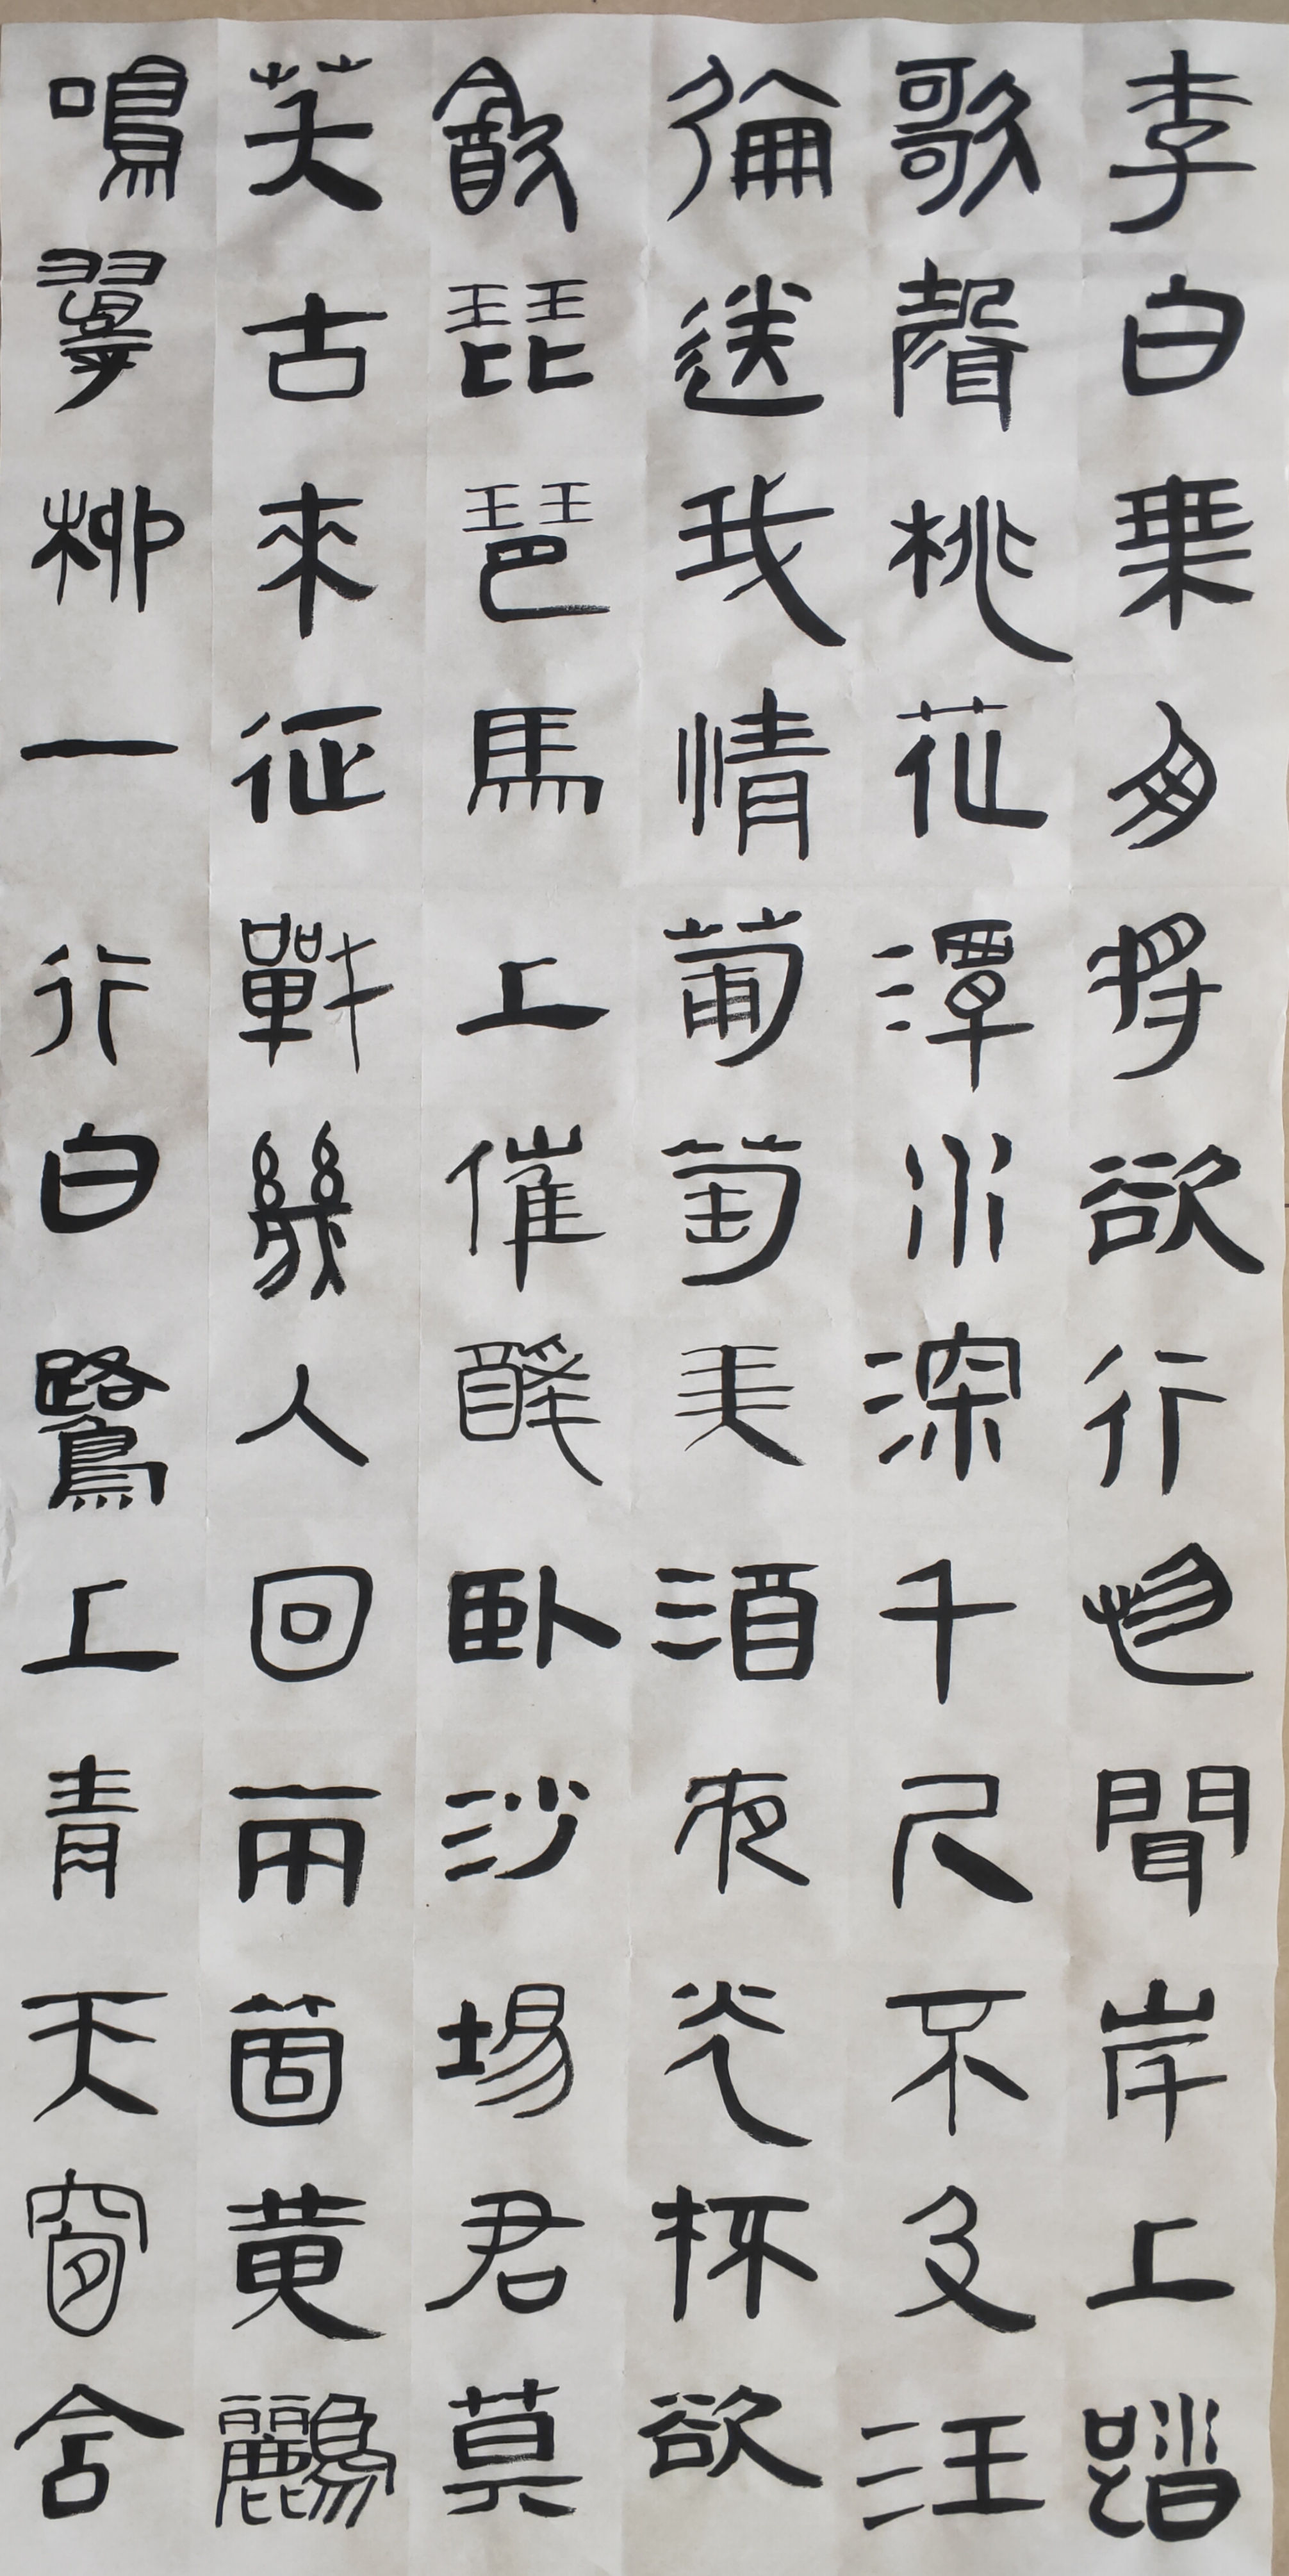 李白乘舟將欲行忽聞岸上踏
歌聲桃花潭水深千尺不及汪
倫送我情葡萄美酒夜光杯欲
飲琵琶馬上催醉臥沙場君莫
笑古來征戰幾人回兩箇黃鸝
鳴翠柳一行白鷺上青天窗含